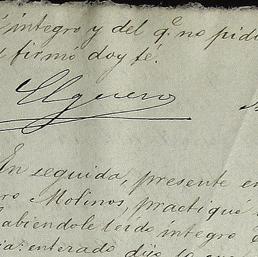 íntegro y del q.e no pidi
firmó doy fé.
Elguero
En seguida, presente en
ro Molinos, practiqué
habiéndole leido integro
ia: enterado dijo